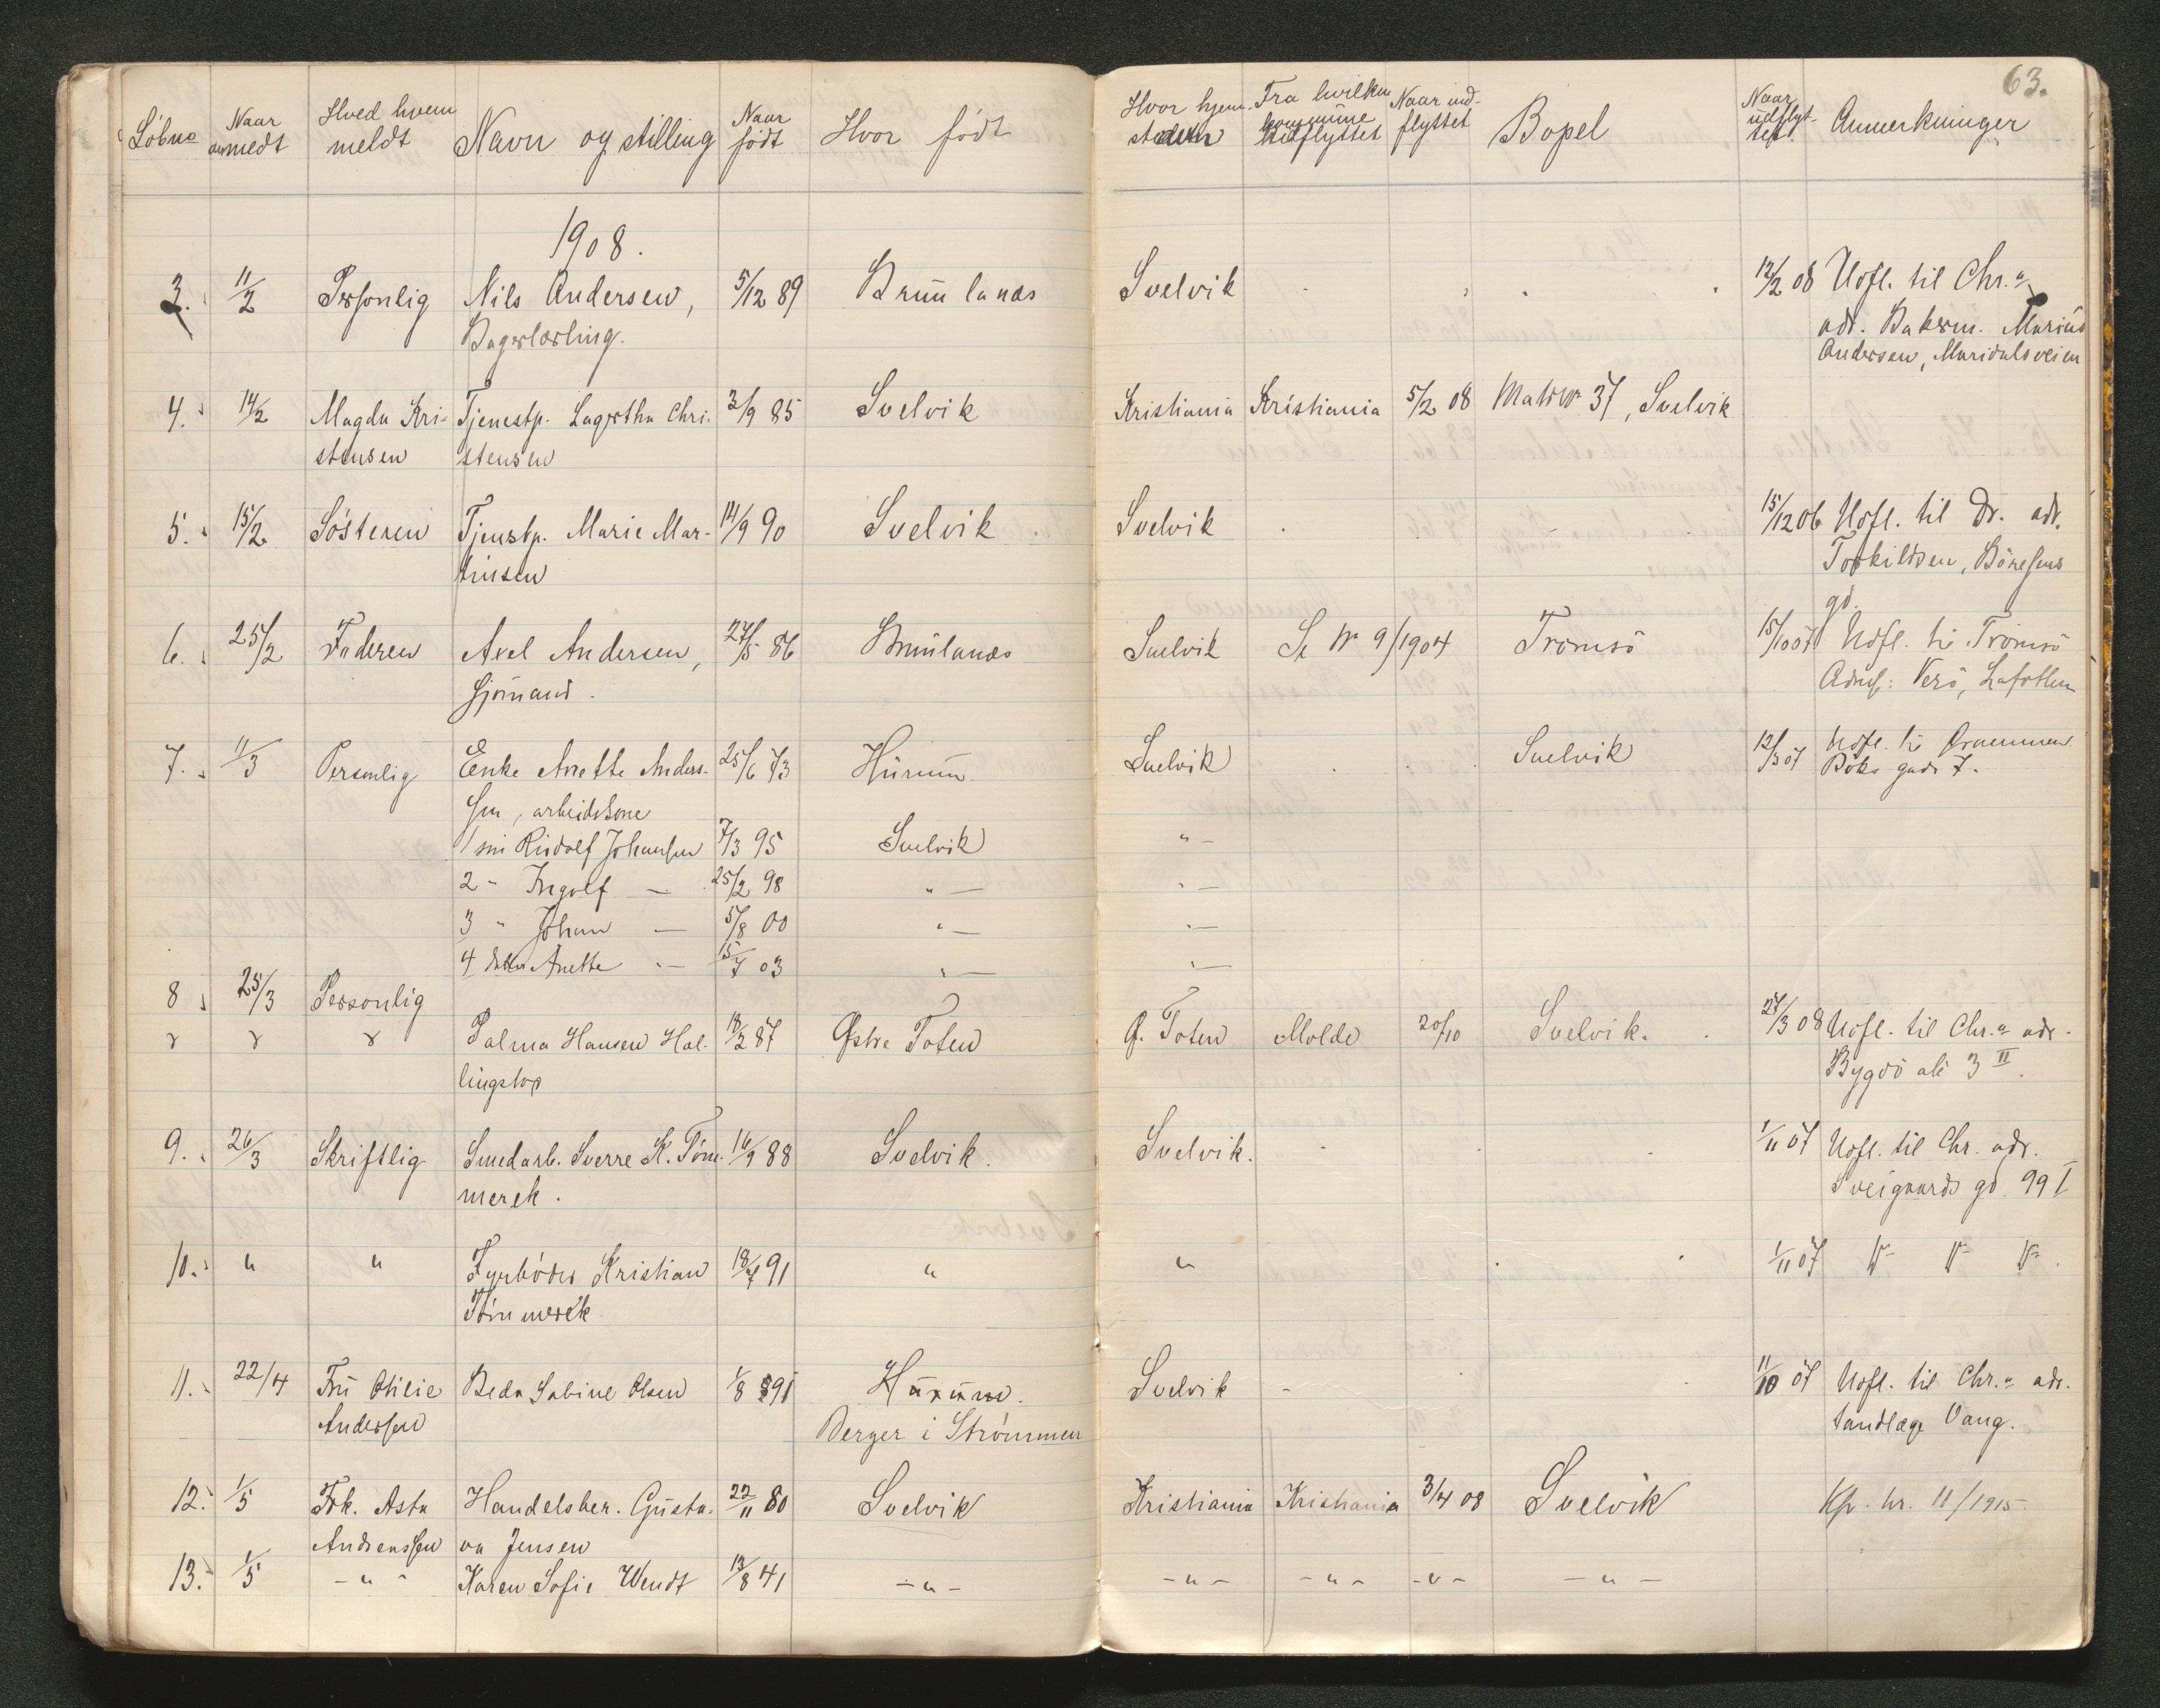 63.
Löbno Naar anmedt Hved hvem meldt Navn og stilling Naar født Hvor født Hvor hjemstavn Fra hvilken kommune indflyttet Naar indflyttet Bopel Naar udflyttet. Anmerkninger
1908.
3. 11/2 Personlig Nils Andersen, 5/12 89 Brunlanæs Svelvik 12/2 08 Udfl. til Chr.a
Bagerlærling. adr. Bakerm. Marius
Andersen, Maridalsveien
4. 14/2 Magda Kri- Tjenestp. Lagertha Chri- 3/9 85 Svelvik Kristiania Kristiania 5/2 08 Matr No 37, Svelvik
stensen stensen
5. 15/2 Søsteren Tjenstp. Marie Mar- 14/9 90 Svelvik Svelvik 15/12 06 Udfl. til Dr. adr.
tinsen Torkildsen,
gd.
6. 25/2 Faderen Axel Andersen, 27/5 86 Brunlanæs Svelvik Se No 9/1904 Tromsö 15/10 07 Udfl. ti Tromsö
sjömand. Verö, Lafotten
7. 11/3 Personlig Enke Anette Anders- 25/6 73 Hurum Svelvik Svelvik 12/3 07 Udfl. ti Drammen
sen, arbeidskone gade 7.
1 sön Rudolf Johansen 7/3 95 Svelvik "-
2 " Ingolf — 25/2 98 "— "—
3 " Johan — 5/8 00 "— "—
4 datter Anette — 15/7 03 "— "—
8 25/3 Personlig
Palma Hansen Hal- 18/2 87 Østre Toten Ø. Toten Molde 20/10 Svelvik. 27/3 08 Udfl. til Chr.a adr.
lingstap Bygdö ale 3 II.
9. 26/3 Skriftlig Smedarb. Sverre K. Töm- 16/9 88 Svelvik. Svelvik. 1/11 07 Udfl. til Chr. adr.
merek. Sveigaards gd. 99 I
10. " " Fyrböder Kristian 18/7 91 " " 1/11 07
Tömmerek
11. 22/4 Fru Otilie Beda Sabine Olsen 1/8 91 Hurum. Svelvik 11/10 07 Udfl. til Chr.a adr.
Andersen Berger i Strömmen tandlæge Vang.
12. 1/5 Frk. Asta Handelsber. Gusta- 22/11 80 Svelvik Kristiania Kristiania 3/4 08 Svelvik Kfr. nr. 11/1915
Andreassen va Jensen
13. 1/5 -"- Karen Sofie Wendt 13/8 41 -"- -"- -"- -"- -"-